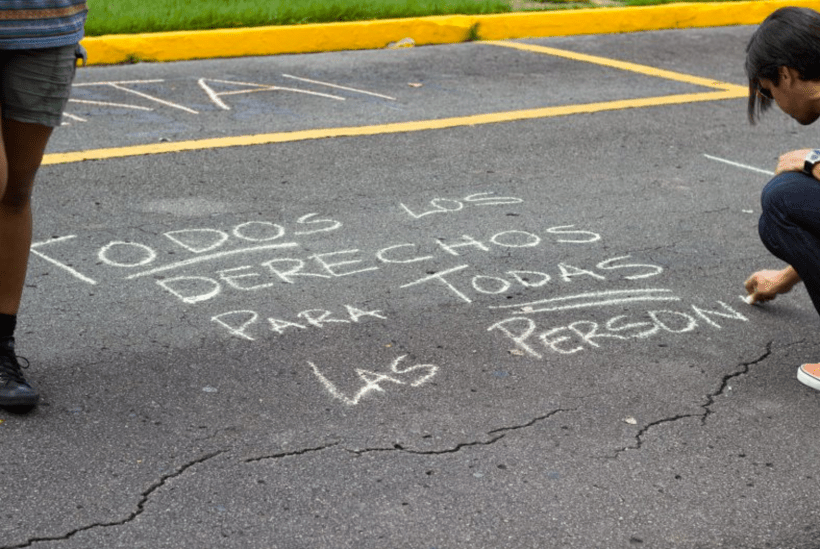 TODOS LOS
DERECHOS
PARA TODAS
LAS PERSON